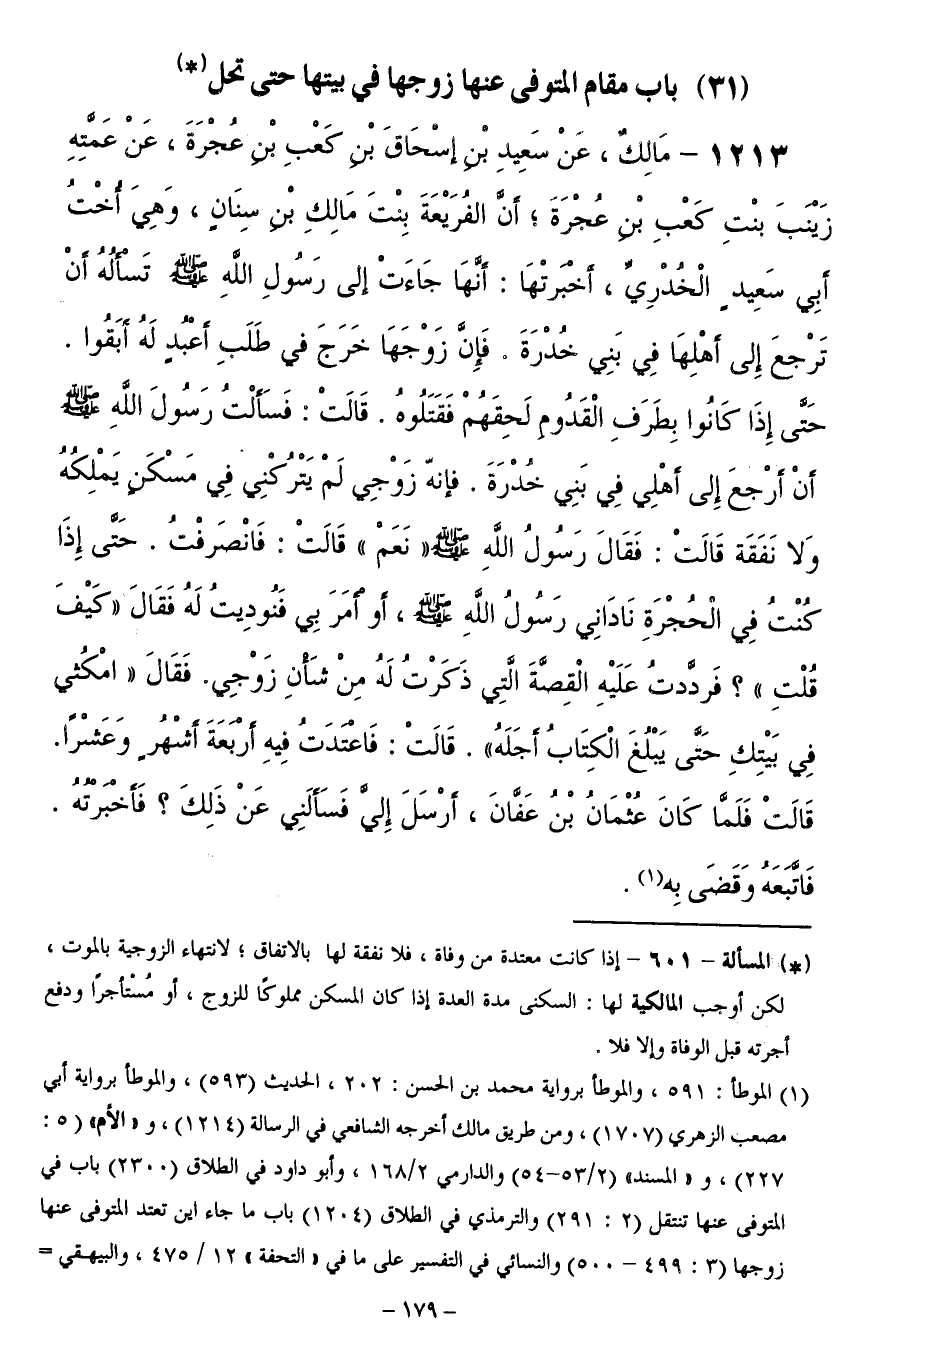 (٣١) باب مقام المتوفى عنها زوجها في بيتها حتى تحل(*)
١٢١٣ – مَالِكٌ ، عَنْ سَعِيدِ بْنِ إِسْحَاقَ بْنِ كَعْبِ بْنِ عُجْرَةَ ، عَنْ عَمَّتِهِ
زَيْنَبَ بنْتِ كَعْبِ بْنِ عُجْرَةَ ؛ أَنَّ الفُرَيْعَةَ بِنْتَ مَالِكِ بْنِ سِنَانٍ ، وَهِيَ أُخْتُ
أَبِي سَعِيدٍ الْخُدْرِيِّ ، أَخْبَرَتْهَا : أَنَّهَا جَاءَتْ إلى رَسُولِ اللَّهِ ﷺ تَسْأَلُهُ أَنْ
تَرْجِعَ إِلى أَهْلِهَا فِي بَنِي خُدْرَةَ . فَإِنَّ زَوْجَهَا خَرَجَ في طَلَبِ أَعْبُدٍ لَهُ أَبَقُوا .
حَتَّى إِذَا كَانُوا بِطَرَفِ الْقَدُومِ لَحِقَهُمْ فَقَتَلُوهُ . قَالَتْ : فَسَأَلْتُ رَسُولَ اللَّهِ ﷺ
أَنْ أَرْجِعَ إِلى أَهْلِي فِي بَنِي خُدْرَةَ . فإنهّ زَوْجِي لَمْ يَتْرُكْنِي فِي مَسْكَنٍ يَمْلِكُهُ
وَلا نَفَقَة قَالَتْ : فَقَالَ رَسُولُ اللَّهِ ﷺ « نَعَمْ » قَالَتْ : فَانْصَرفْتُ . حَتَّى إِذَا
كُنْتُ فِي الْحُجْرَةِ نَادَانِي رَسُولُ اللَّهِ ﷺ ، أَو أَمَرَ بِي فَنُودِيتُ لَهُ فَقَالَ « كَيْفَ
قُلْتِ » ؟ فَردَّدتُ عَلَيْهِ الْقِصَّةَ الَّتِي ذَكَرْتُ لَهُ مِنْ شَأْنِ زَوْجِي. فَقَالَ « امْكُثي
فِي بَيْتِكِ حَتَّى يَبْلُغَ الْكِتَابُ أَجَلَهُ» . قَالَتْ : فَاعْتَدَتُ فيهِ أَرْبَعَةَ أَشْهُرٍ وَعَشْرًا.
قَالَتْ فَلَمَّا كَانَ عُثْمَانُ بْنُ عَفَّانَ ، أَرْسَلَ إِليَّ فَسَأَلَنِي عَنْ ذَلِكَ ؟ فَأَخْبَرْتُهُ .
فَاتَّبَعَهُ وَقَضَى بِهِ(١) .
(*) المسألة – ٦٠١ – إذا كانت معتدة من وفاة ، فلا نفقة لها بالاتفاق ؛ لانتهاء الزوجية بالموت ،
لكن أوجب المالكية لها : السكنى مدة العدة إذا كان المسكن مملوكًا للزوج ، أو مُسْتأجرًا ودفع
أجرته قبل الوفاة وإلا فلا .
(١) الموطأ : ٥٩١ ، والموطأ برواية محمد بن الحسن : ٢٠٢ ، الحديث (٥٩٣) ، والموطأ برواية أبي
مصعب الزهري (١٧٠٧) ، ومن طريق مالك أخرجه الشافعي في الرسالة (١٢١٤) ، و « الأم» ( ٥ :
٢٢٧) ، و « المسند» (٢/ ٥٣–٥٤) والدارمي ٢/ ١٦٨ ، وأبو داود في الطلاق (٢٣٠٠) باب في
المتوفى عنها تنتقل (٢ : ٢٩١) والترمذي في الطلاق (١٢٠٤) باب ما جاء اين تعتد المتوفى عنها
زوجها (٣ : ٤٩٩ – ٥٠٠) والنسائي في التفسير على ما في « التحفة » ١٢ / ٤٧٥ ، والبيهقي =
– ١٧٩ –